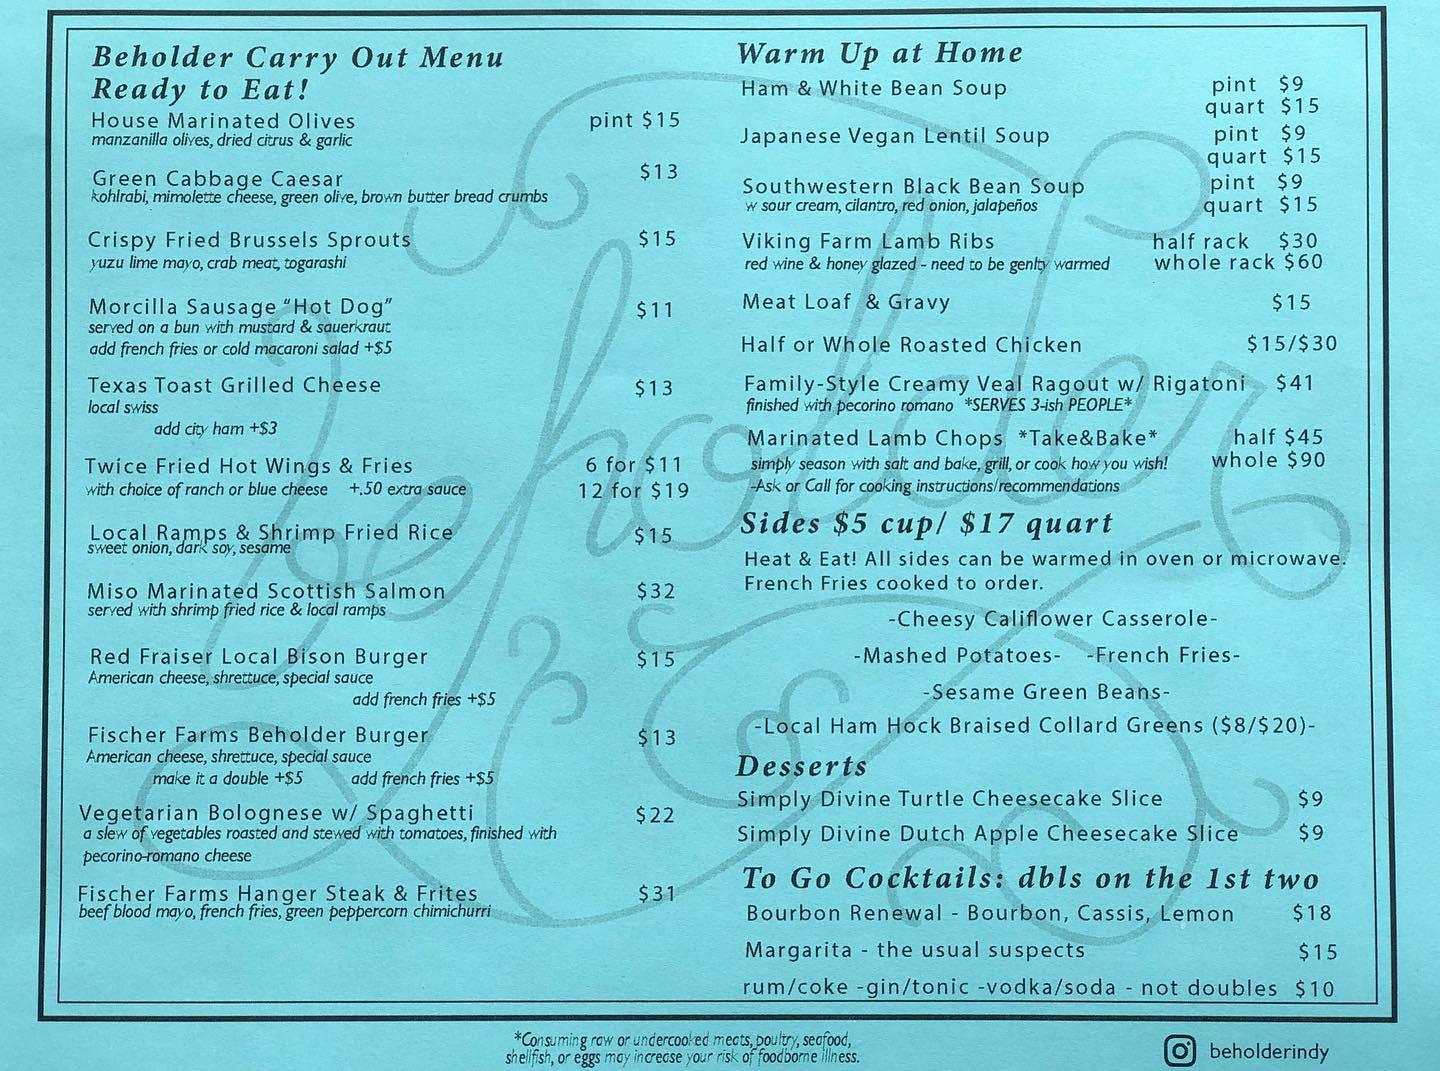 Beholder Carry Out Menu
Ready to Eat!
House Marinated Olives pint $15
manzanilla olives, dried citrus & garlic
Green Cabbage Caesar $13
kohlrabi, mimolette cheese, green olive, brown butter bread crumbs
Crispy Fried Brussels Sprouts $15
yuzu lime mayo, crab meat, togarashi
Morcilla Sausage "Hot Dog" $11
served on a bun with mustard & sauerkraut
add french fries or cold macaroni salad +$5
Texas Toast Grilled Cheese $13
local swiss
add city ham +$3
Twice Fried Hot Wings & Fries 6 for $11
with choice of ranch or blue cheese +.50 extra sauce 12 for $19
Local Ramps & Shrimp Fried Rice $15
sweet onion, dark soy, sesame
Miso Marinated Scottish Salmon $32
served with shrimp fried rice & local ramps
Red Fraiser Local Bison Burger $15
American cheese, shrettuce, special sauce
add french fries +$5
Fischer Farms Beholder Burger $13
American cheese, shrettuce, special sauce
make it a double +$5 add french fries +$5
Vegetarian Bolognese w/ Spaghetti $22
a slew of vegetables roasted and stewed with tomatoes, finished with
pecorino-romano cheese
Fischer Farms Hanger Steak & Frites $31
beef blood mayo, french fries, green peppercorn chimichurri
Warm Up at Home
Ham & White Bean Soup pint $9
quart $15
Japanese Vegan Lentil Soup pint $9
quart $15
Southwestern Black Bean Soup pint $9
w sour cream, cilantro, red onion, jalapeños quart $15
Viking Farm Lamb Ribs half rack $30
red wine & honey glazed - need to be genlty warmed whole rack $60
Meat Loaf & Gravy $15
Half or Whole Roasted Chicken $15/$30
Family-Style Creamy Veal Ragout w/ Rigatoni $41
finished with pecorino romano *SERVES 3-ish PEOPLE*
Marinated Lamb Chops *Take&Bake* half $45
simply season with salt and bake, grill, or cook how you wish! whole $90
-Ask or Call for cooking instructions/recommendations
Sides $5 cup/ $17 quart
Heat & Eat! All sides can be warmed in oven or microwave.
French Fries cooked to order.
-Cheesy Califlower Casserole-
-Mashed Potatoes- -French Fries-
-Sesame Green Beans-
-Local Ham Hock Braised Collard Greens ($8/$20)-
Desserts
Simply Divine Turtle Cheesecake Slice $9
Simply Divine Dutch Apple Cheesecake Slice $9
To Go Cocktails: dbls on the 1st two
Bourbon Renewal - Bourbon, Cassis, Lemon $18
Margarita - the usual suspects $15
rum/coke -gin/tonic -vodka/soda - not doubles $10
beholder
*Consuming raw or undercooked meats, poultry, seafood,
shellfish, or eggs may increase your risk of foodborne illness.
beholderindy